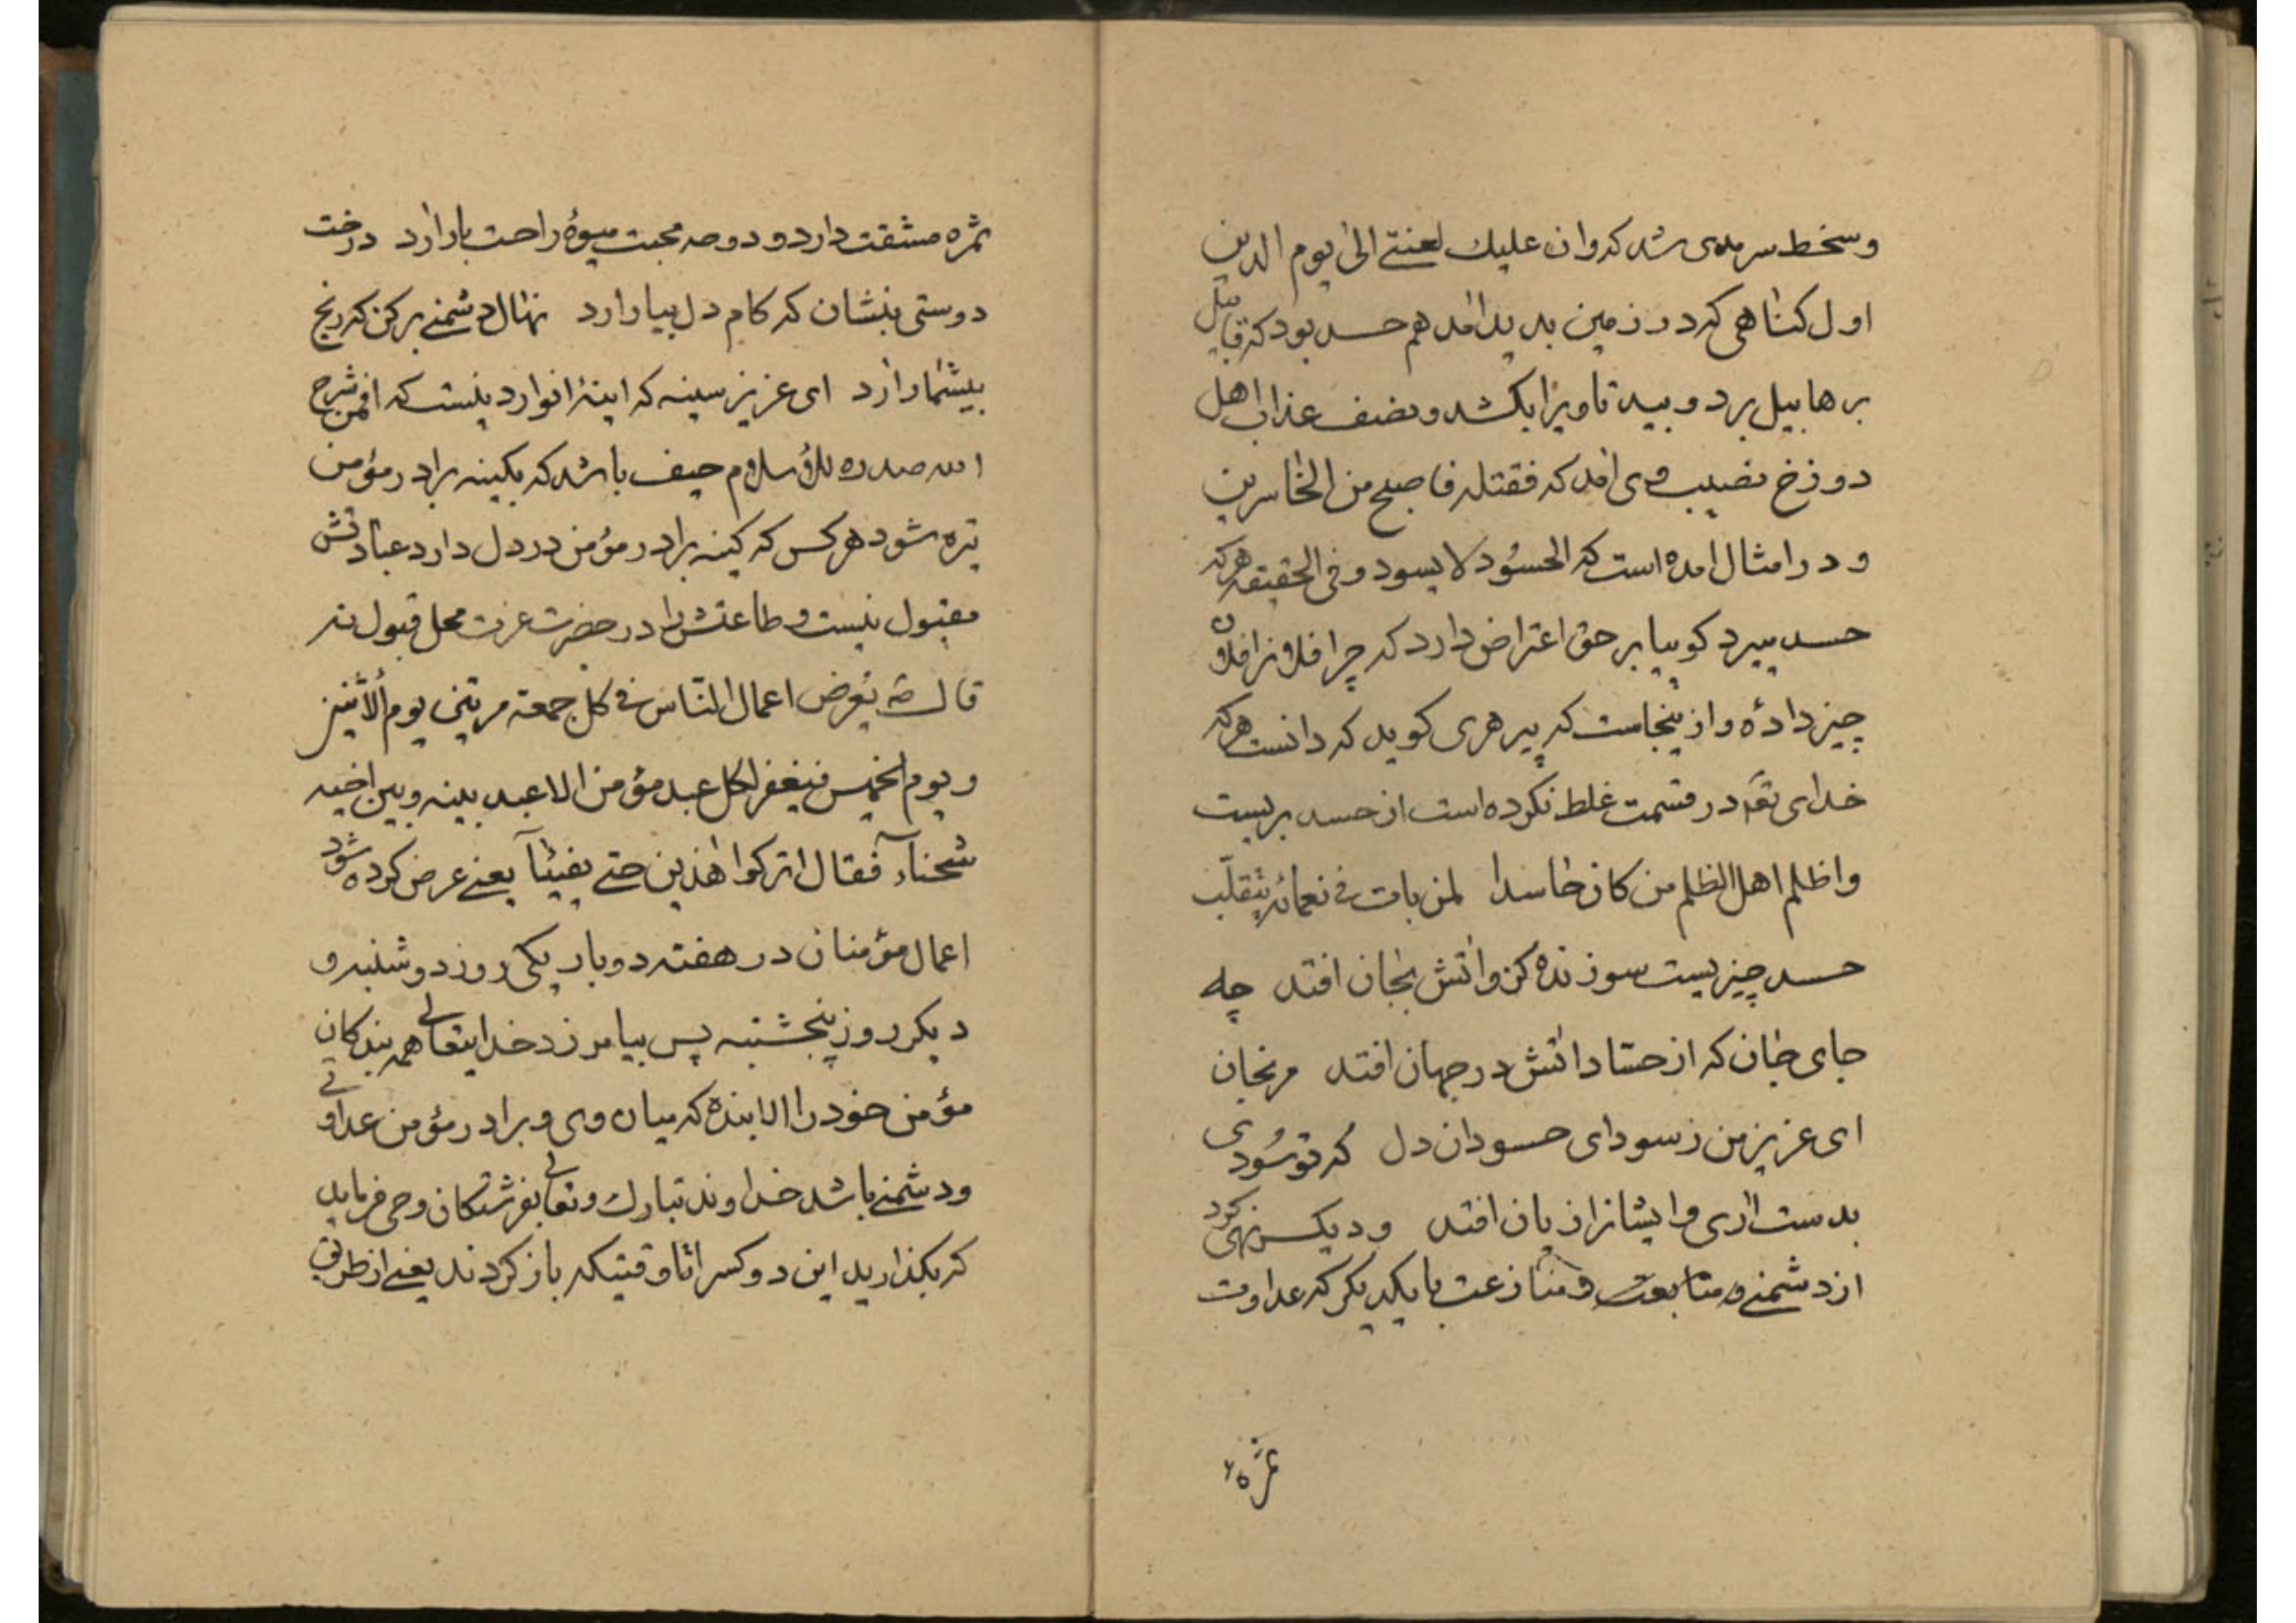 وسخط سرمدی شد که وان علیك لعنتی الی یوم الدین
اول کناهی که در زمین پدید امد هم حسد بود که قابیل
بر هابیل برد و بید تا ویرا بکشد و نصف عذاب اهل
دوزخ نصیب وی امد که فقتله فاصبح من الخاسرین
و در امثال امده است که الحسُود لا یسود و فی الحقیقه هرکه
حسد میبرد کوییا بر حق اعتراض دارد که چرا فلان را فلان
چیز دادهٔ و از ینجاست که پیر هری کوید که دانست هرکه
خدای تعه در قسمت غلط نکرده است از حسد بریست
واظلم اهل الظلم من کان حاسدا لمن بات فی نعمائه یتقلّب
حسد چیزیست سوزنده کزو اتش بجان افتد چه
جای جان که از حسّاد اتش در جهان افتد مرنجان
ای عزیز من ز سودای حسودان دل که تو سُودی
بدست اری و ایشانرا زیان افتد و دیکر نهی کرد
از دشمنی و متابعت و منازعت با یکدیکر که عداوت
ثمره
ثمره مشقت دارد و دوحه محبت میوهٔ راحت بار ارد درخت
دوستی بنشان که کام دل ببار ارد نهال دشمنی برکن که رنج
بیشمار ارد ای عزیز سینه که اینهٔ انوار دینست که افمن شرح
الله صدره للاسلام حیف باشد که بکینه برادر مؤمن
تیره شود هرکس که کینه برادر مؤمن در دل دارد عبادتش
مقبول نیست و طاعتش را در حضرت عزت محل قبول نه
قال صه تُعرض اعمال النّاس فی کل جمعة مرتین یوم الاثنین
ویوم الخمیس فیغفر لکل عبد مؤمن الا عبد بینه وبین اخیه
شحنآء فقال اترکوا هذین حتی یفیئآ یعنی عرض کرده شود
اعمال مؤمنان در هفته دو بار یکی روز دوشنبه و
دیکر روز پنجشنبه پس بیامرزد خدایتعالی همه بندکان
مؤمن خود را الا بنده که میان وی و برادر مؤمن عداوتی
ودشمنی باشد خداوند تبارك وتعالی بفرشتکان وحی فرماید
که بکذارید این دو کس را تا وقتیکه باز کردند یعنی از طریق